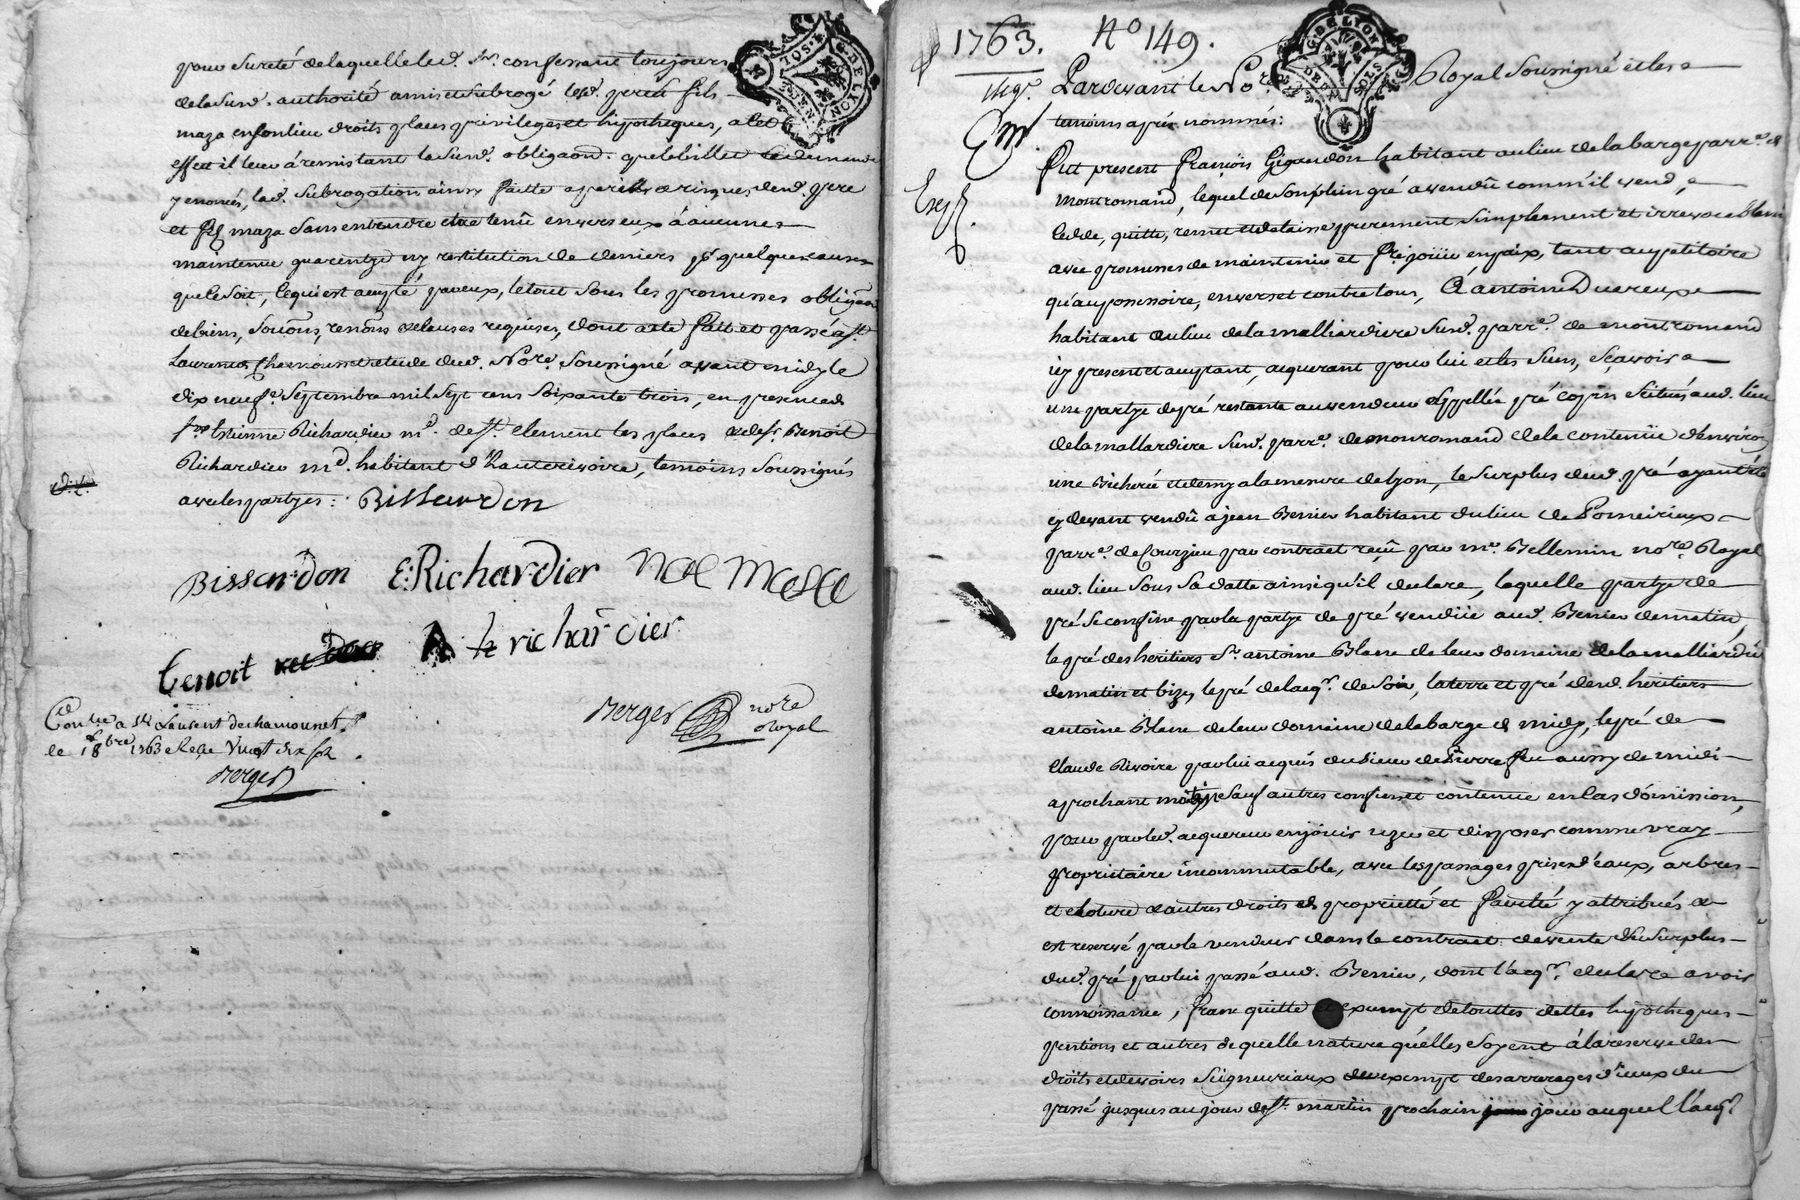 pour sureté de laquelle led. Sr. confessant toujours
de la Susd. authorité a mis et subrogé lesd. pere et fils
maza en son lieu droits places privileges et hipotheques, a cet
effet il leur a remis tant la Susd. obligaon. que le billet
y enoncés, lad. Subrogation ainsy faitte a perils et risques desd. pere
et fils maza sans entendre etre tenû envers eux à aucune
maintenue garentye ny restitution de deniers pr. quelque cause
que ce soit, ce qui est accepté par eux, le tout sous les promesses obligaon
de biens, soumons, renons et clauses requises, dont acte fait et passé a St.
Laurent de Chamousset etude dud. Nore. Soussigné avant midy le
dix neufe. Septembre mil Sept cens Soixante trois, en presence de
Etienne Richardier md. de St. Clement les places et de Sr. Benoit
Richardier md. habitant d'hauterivoire, temoins Soussignés
avec les partyes: Bissardon
Bissardon E: Richardier
benoit richardier
Berger nore Royal
Conlle a St. Laurent de chamousset
le 1763 Reçu
Berger
1763. No 149.
Pardevant le Nore. Royal Soussigné et les
temoins après nommés:
Fut present François Gigandon habitant au lieu de la barge parre. de
montromand, lequel de Son plein gré a vendû comm'il vend,
cedde, quitte, remet et delaisse purement Simplement et irrevocablement
avec promesses de maintenir et fre. jouir en paix, tant au petitoire
qu'au possessoire, envers et contre tous, A antoine
habitant du lieu de la malliardiere Susd. parre. de montromand
icy present et acceptant, acquerant pour lui et les Siens, Sçavoir
une partye de pré restante au vendeur appellée pré Situés aud. lieu
de la mallardiere Susd. parre. de monromand de la contenüe d'environ
une Bicherée et demy a la mesure de Lyon, le Surplus dud. pré ayant été
cy devant vendû a jean Berrier habitant du lieu de Pomeirieux
parre. de Courzieu par contract reçû par me. Bellemin nore. Royal
aud. lieu Sous Sa datte ainsi qu'il declare, laquelle partye de
pré Se confine par la partye de pré vendüe aud. Berrier de matin,
le pré des heritiers Sr. antoine Blanc de leur domaine de la malliardiere
de matin et bize, le pré de l'acqr. de Soir, la terre et pré desd. heritiers
antoine Blanc de leur domaine de la barge de midy, le pré de
Claude Rivoire par lui acquis du Sieur de aussy de midi
aprochant Sauf autres confins et contenue en cas d'omission,
pour par led. acquereur en jouir uzer et disposer comme vray
proprietaire incommutable, avec les passages prises d'eaux, arbres
et cloture et autres droits de proprietté et faculté y attribués
est reservé par le vendeur dans le contract de vente du Surplus
dud. pré par lui passé aud. Berrier, dont l'acqr. declare avoir
connoissance, franc quitte et exempt de touttes dettes hipotheques
pentions et autres de quelle nature qu'elles Soyent à la reserve des
droits et devoirs Seigneuriaux exempt des arrerages d'iceux du
passé jusques au jour de St. martin prochain jour auquel l'acqr.